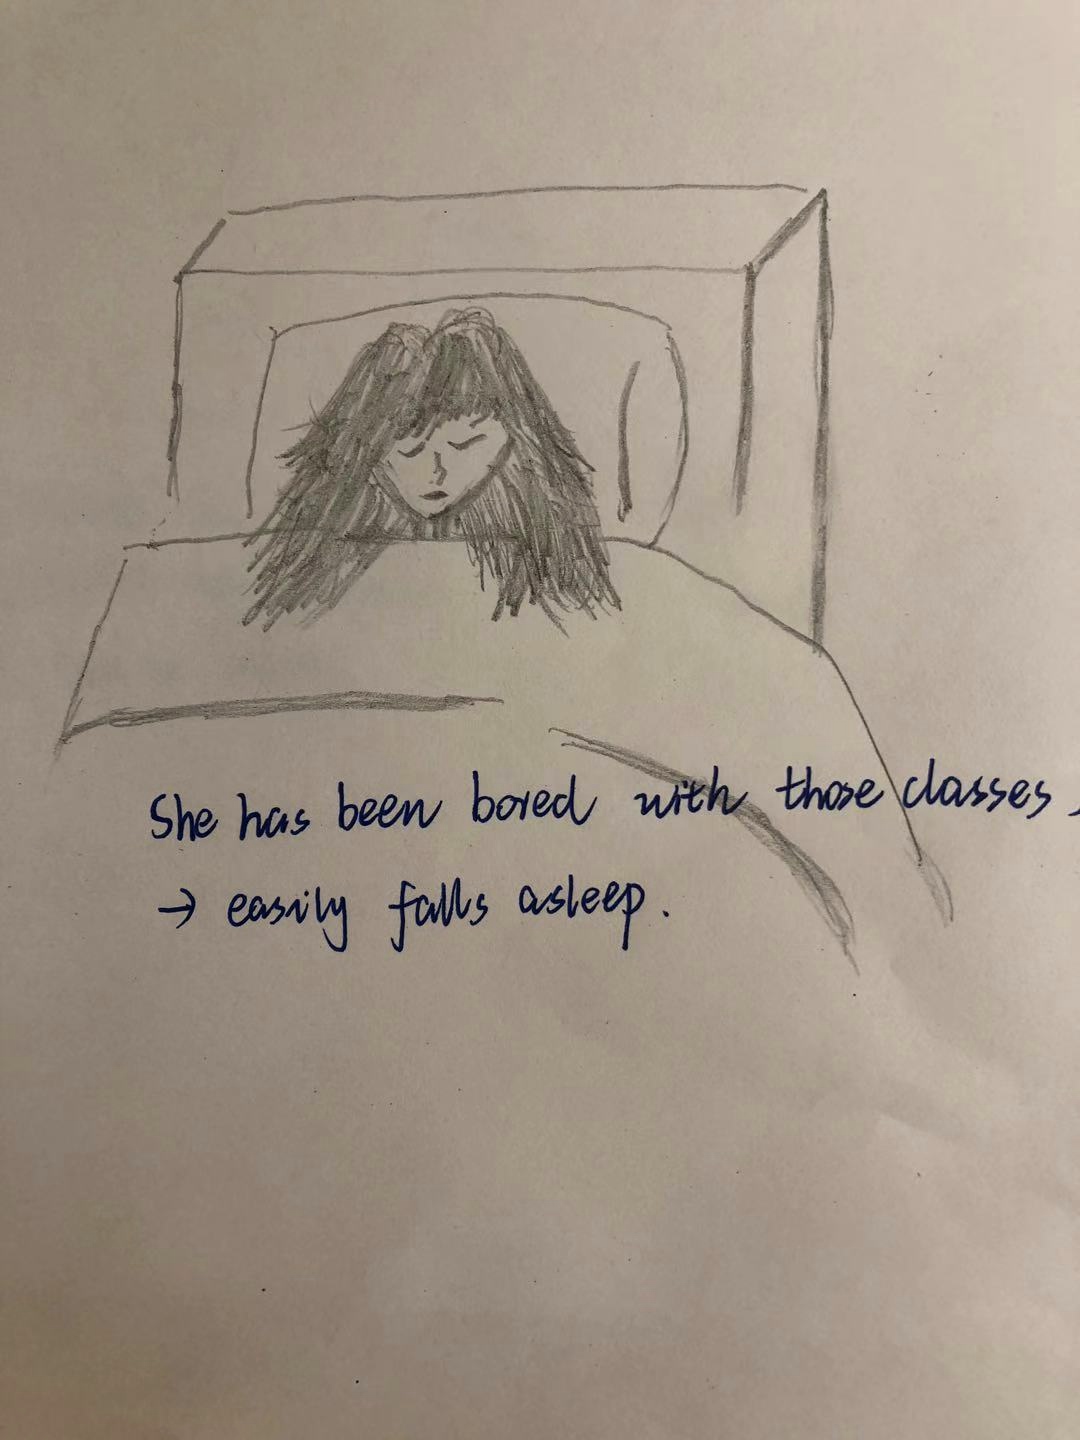 She has been bored with those classes,
→ easily falls asleep.